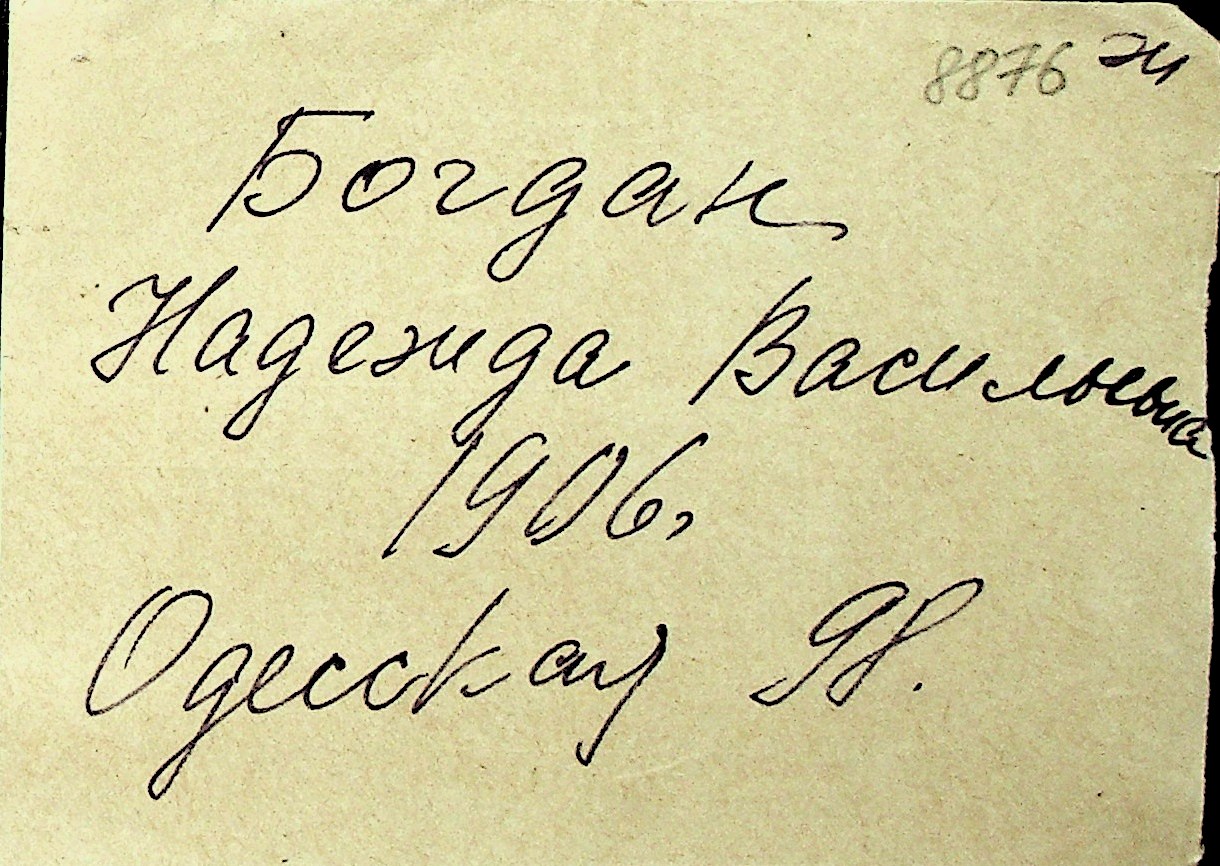 8876 эи
Богдан
Надежда Васильевна
1906г
Одесская 98.